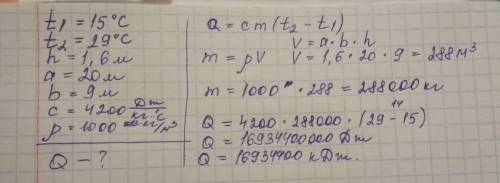 t₁ = 15°C
t₂ = 29°C
h = 1,6 м
a = 20 м
b = 9 м
c = 4200 Дж/кг·°C
ρ = 1000 кг/м³
Q – ?
Q = cm (t₂ – t₁)
V = a · b · h
m = ρV V = 1,6 · 20 · 9 = 288 м³
m = 1000 · 288 = 288000 кг
14
Q = 4200 · 288000 · (29 – 15)
Q = 16934400000 Дж
Q = 16934400 кДж.